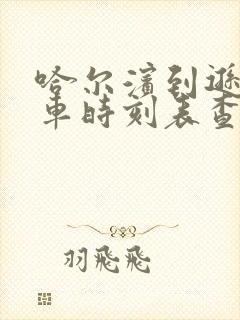 哈尔滨到逊
车时刻表查
羽飛飛